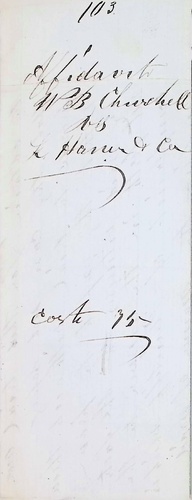 103
Affidavit
W B Churchell
vs
L Haner & Co
Costs 75